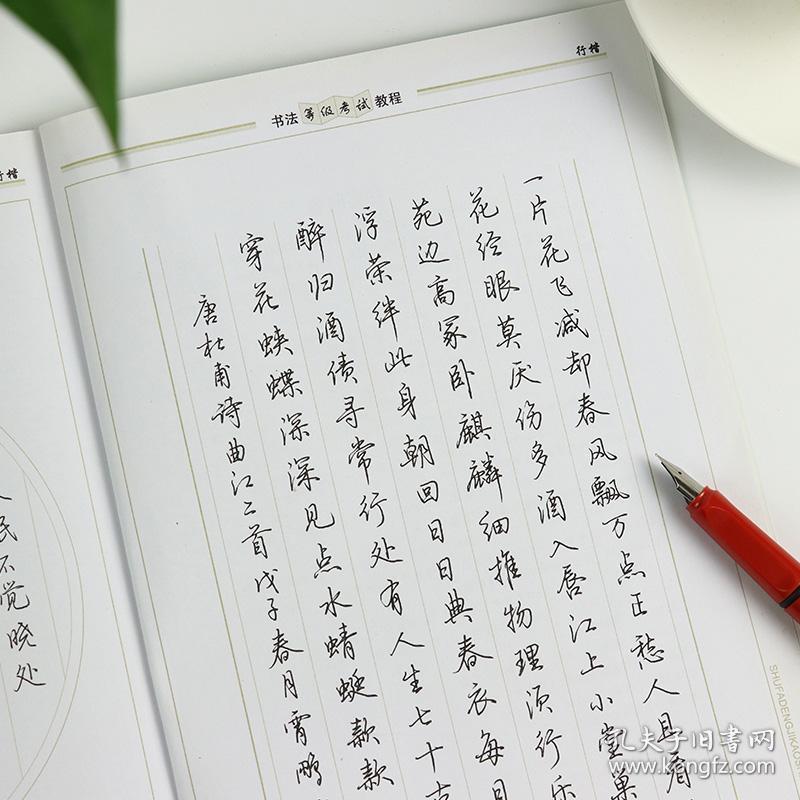 行楷
书法等级考试教程
一片花飞减却春风飘万点正愁人且看
花经眼莫厌伤多酒入唇江上小堂巢
苑边高冢卧麒麟细推物理须行乐
浮荣绊此身朝回日日典春衣每日
醉归酒债寻常行处有人生七十古
穿花蛱蝶深深见点水蜻蜓款款
唐杜甫诗曲江二首戊子春月霄鹏
行楷
人民
不觉晓处
SHUFADENGJIKAOSHI
孔夫子旧书网
www.kongfz.com